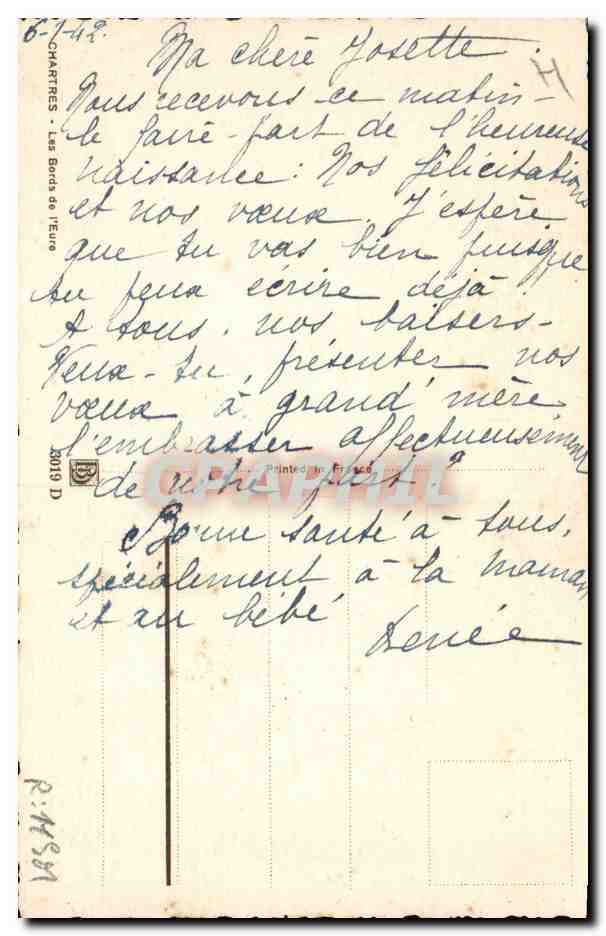 6-1-42.
Ma chère Josette.
Nous recevons ce matin -
le faire-part de l'heureuse
naissance : Nos félicitations
et nos vœux. J'espère
que tu vas bien puisque
tu peux écrire déjà !
A tous, nos baisers -
Veux-tu, présenter nos
vœux à grand'mère
l'embrasser affectueusement
de notre part ?
Bonne santé à tous,
spécialement à la Maman
et au bébé
Renée
CHARTRES - Les Bords de l'Eure
3019 D
B
Printed in France
CPAPHIL
H